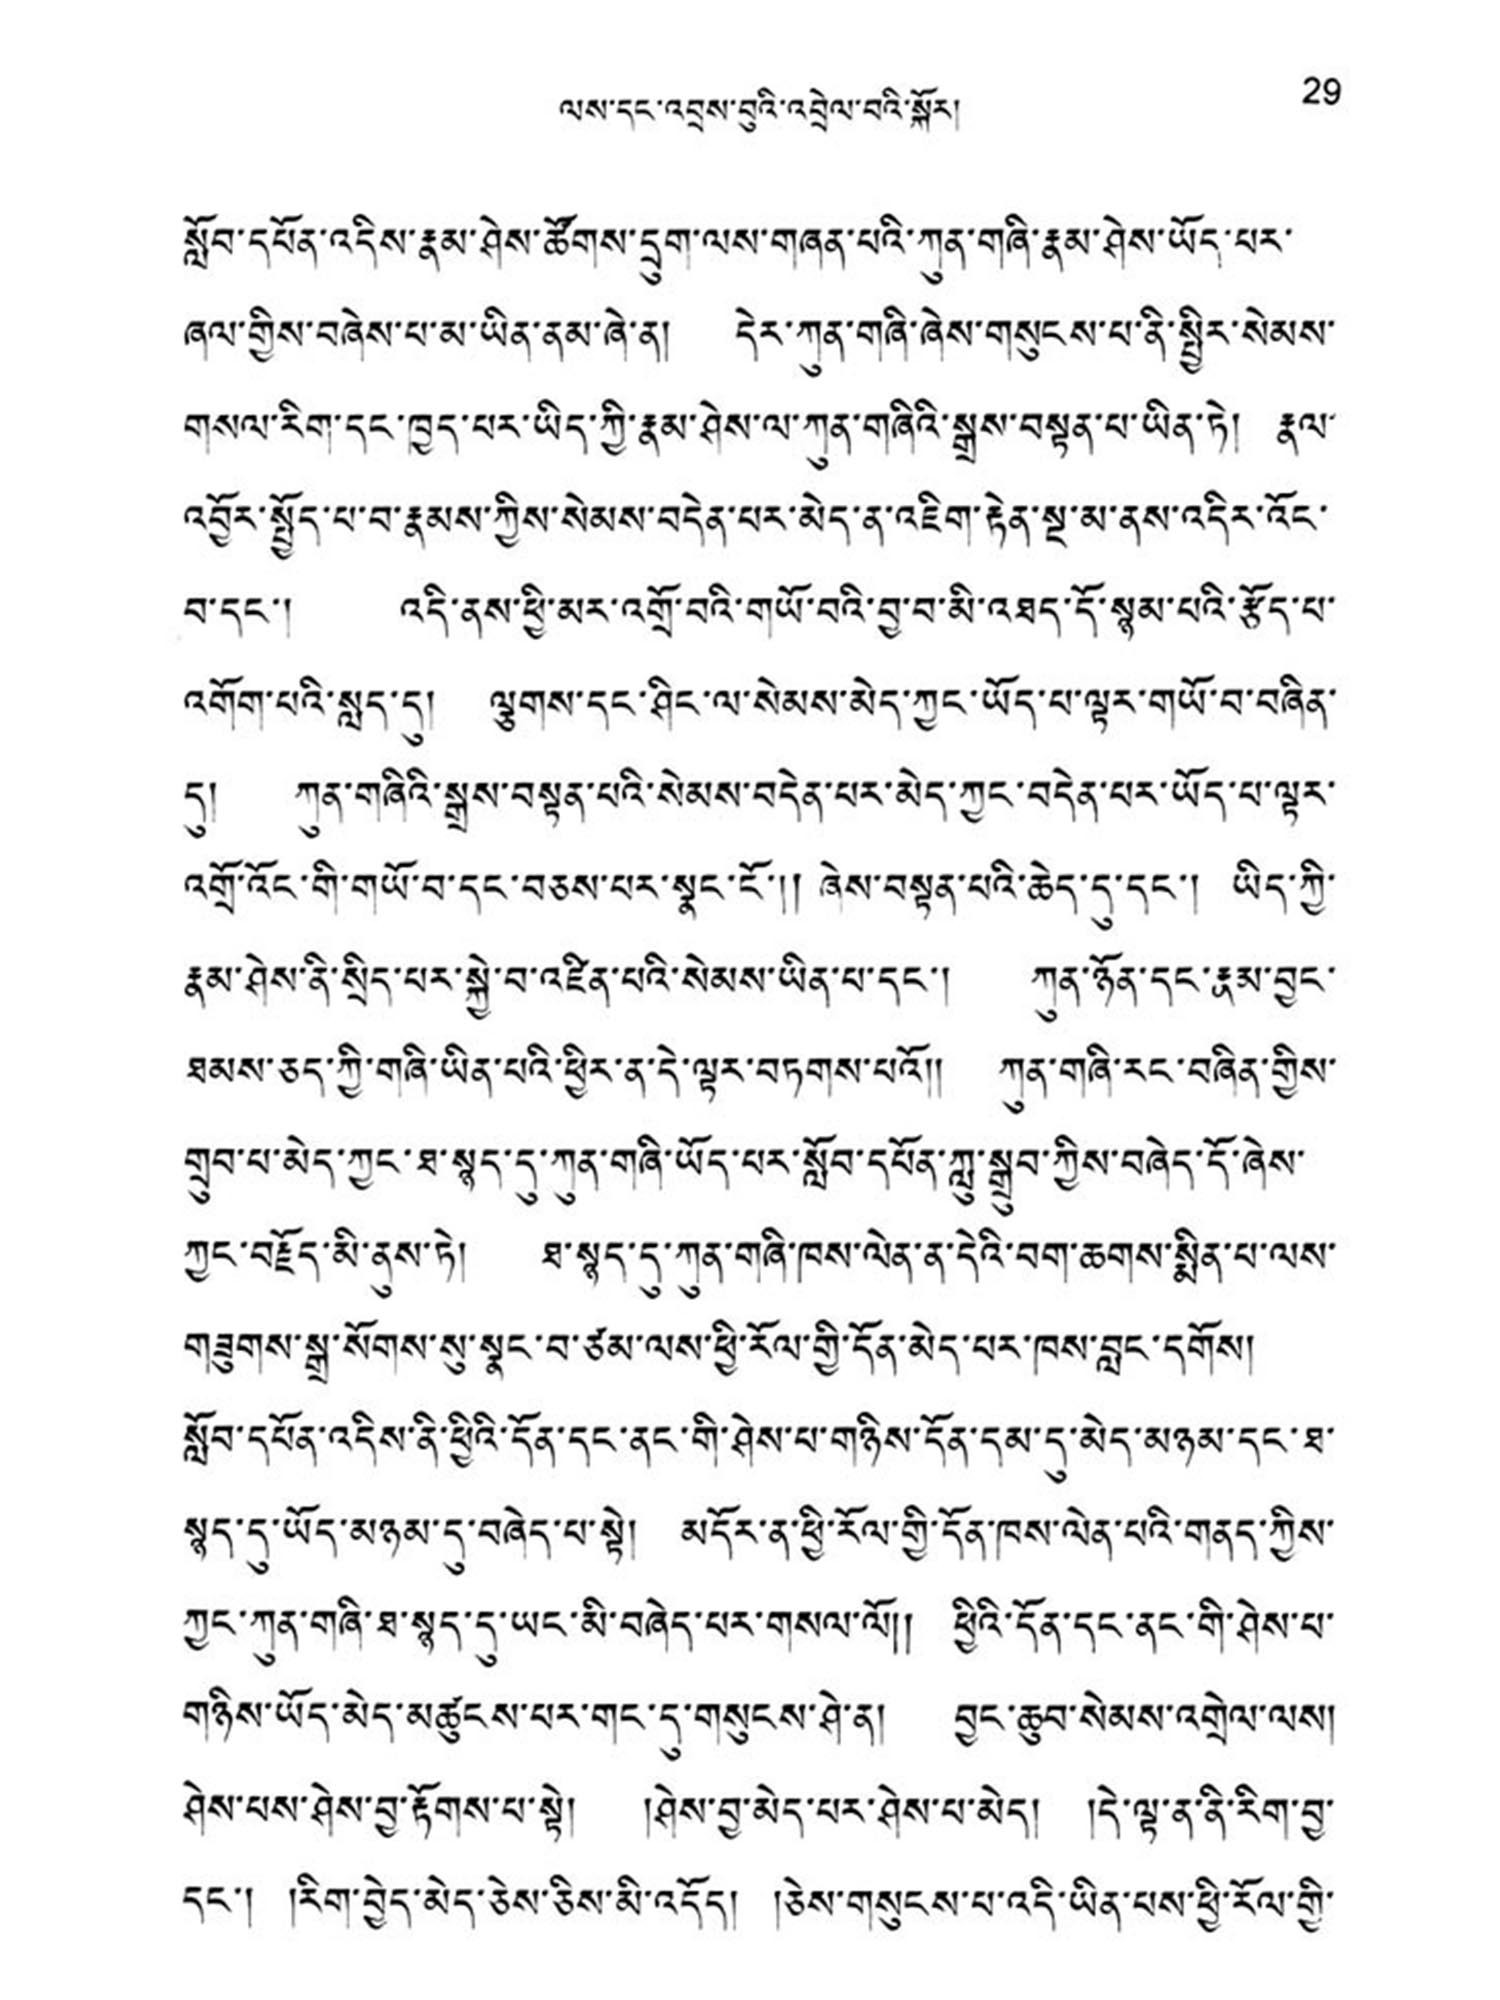 ལས་དང་འབྲས་བུའི་འབྲེལ་བའི་སྐོར།
29
སློབ་དཔོན་འདིས་རྣམ་ཤེས་ཚོགས་དྲུག་ལས་གཞན་པའི་ཀུན་གཞི་རྣམ་ཤེས་ཡོད་པར་
ཞལ་གྱིས་བཞེས་པ་མ་ཡིན་ནམ་ཞེ་ན། དེར་ཀུན་གཞི་ཞེས་གསུངས་པ་ནི་སྤྱིར་སེམས་
གསལ་རིག་དང་ཁྱད་པར་ཡིད་ཀྱི་རྣམ་ཤེས་ལ་ཀུན་གཞིའི་སྒྲས་བསྟན་པ་ཡིན་ཏེ། རྣལ་
འབྱོར་སྤྱོད་པ་བ་རྣམས་ཀྱིས་སེམས་བདེན་པར་མེད་ན་འཇིག་རྟེན་སྔ་མ་ནས་འདིར་འོང་
བ་དང་། འདི་ནས་ཕྱི་མར་འགྲོ་བའི་གཡོ་བའི་བྱ་བ་མི་འཐད་དོ་སྙམ་པའི་རྩོད་པ་
འགོག་པའི་སླད་དུ། ལྕགས་དང་ཤིང་ལ་སེམས་མེད་ཀྱང་ཡོད་པ་ལྟར་གཡོ་བ་བཞིན་
དུ། ཀུན་གཞིའི་སྒྲས་བསྟན་པའི་སེམས་བདེན་པར་མེད་ཀྱང་བདེན་པར་ཡོད་པ་ལྟར་
འགྲོ་འོང་གི་གཡོ་བ་དང་བཅས་པར་སྣང་ངོ་།། ཞེས་བསྟན་པའི་ཆེད་དུ་དང་། ཡིད་ཀྱི་
རྣམ་ཤེས་ནི་སྲིད་པར་སྐྱེ་བ་འཛིན་པའི་སེམས་ཡིན་པ་དང་། ཀུན་ཉོན་དང་རྣམ་བྱང་
ཐམས་ཅད་ཀྱི་གཞི་ཡིན་པའི་ཕྱིར་ན་དེ་ལྟར་བཏགས་པའོ།། ཀུན་གཞི་རང་བཞིན་གྱིས་
གྲུབ་པ་མེད་ཀྱང་ཐ་སྙད་དུ་ཀུན་གཞི་ཡོད་པར་སློབ་དཔོན་ཀླུ་སྒྲུབ་ཀྱིས་བཞེད་དོ་ཞེས་
ཀྱང་བརྗོད་མི་ནུས་ཏེ། ཐ་སྙད་དུ་ཀུན་གཞི་ཁས་ལེན་ན་དེའི་བག་ཆགས་སྨིན་པ་ལས་
གཟུགས་སྒྲ་སོགས་སུ་སྣང་བ་ཙམ་ལས་ཕྱི་རོལ་གྱི་དོན་མེད་པར་ཁས་བླང་དགོས།
སློབ་དཔོན་འདིས་ནི་ཕྱིའི་དོན་དང་ནང་གི་ཤེས་པ་གཉིས་དོན་དམ་དུ་མེད་མཉམ་དང་ཐ་
སྙད་དུ་ཡོད་མཉམ་དུ་བཞེད་པ་སྟེ། མདོར་ན་ཕྱི་རོལ་གྱི་དོན་ཁས་ལེན་པའི་གནད་ཀྱིས་
ཀྱང་ཀུན་གཞི་ཐ་སྙད་དུ་ཡང་མི་བཞེད་པར་གསལ་ལོ།། ཕྱིའི་དོན་དང་ནང་གི་ཤེས་པ་
གཉིས་ཡོད་མེད་མཚུངས་པར་གང་དུ་གསུངས་ཤེ་ན། བྱང་ཆུབ་སེམས་འགྲེལ་ལས།
ཤེས་པས་ཤེས་བྱ་རྟོགས་པ་སྟེ། །ཤེས་བྱ་མེད་པར་ཤེས་པ་མེད། །དེ་ལྟ་ན་ནི་རིག་བྱ་
དང་། །རིག་བྱེད་མེད་ཅེས་ཅིས་མི་འདོད། །ཅེས་གསུངས་པ་འདི་ཡིན་པས་ཕྱི་རོལ་གྱི་